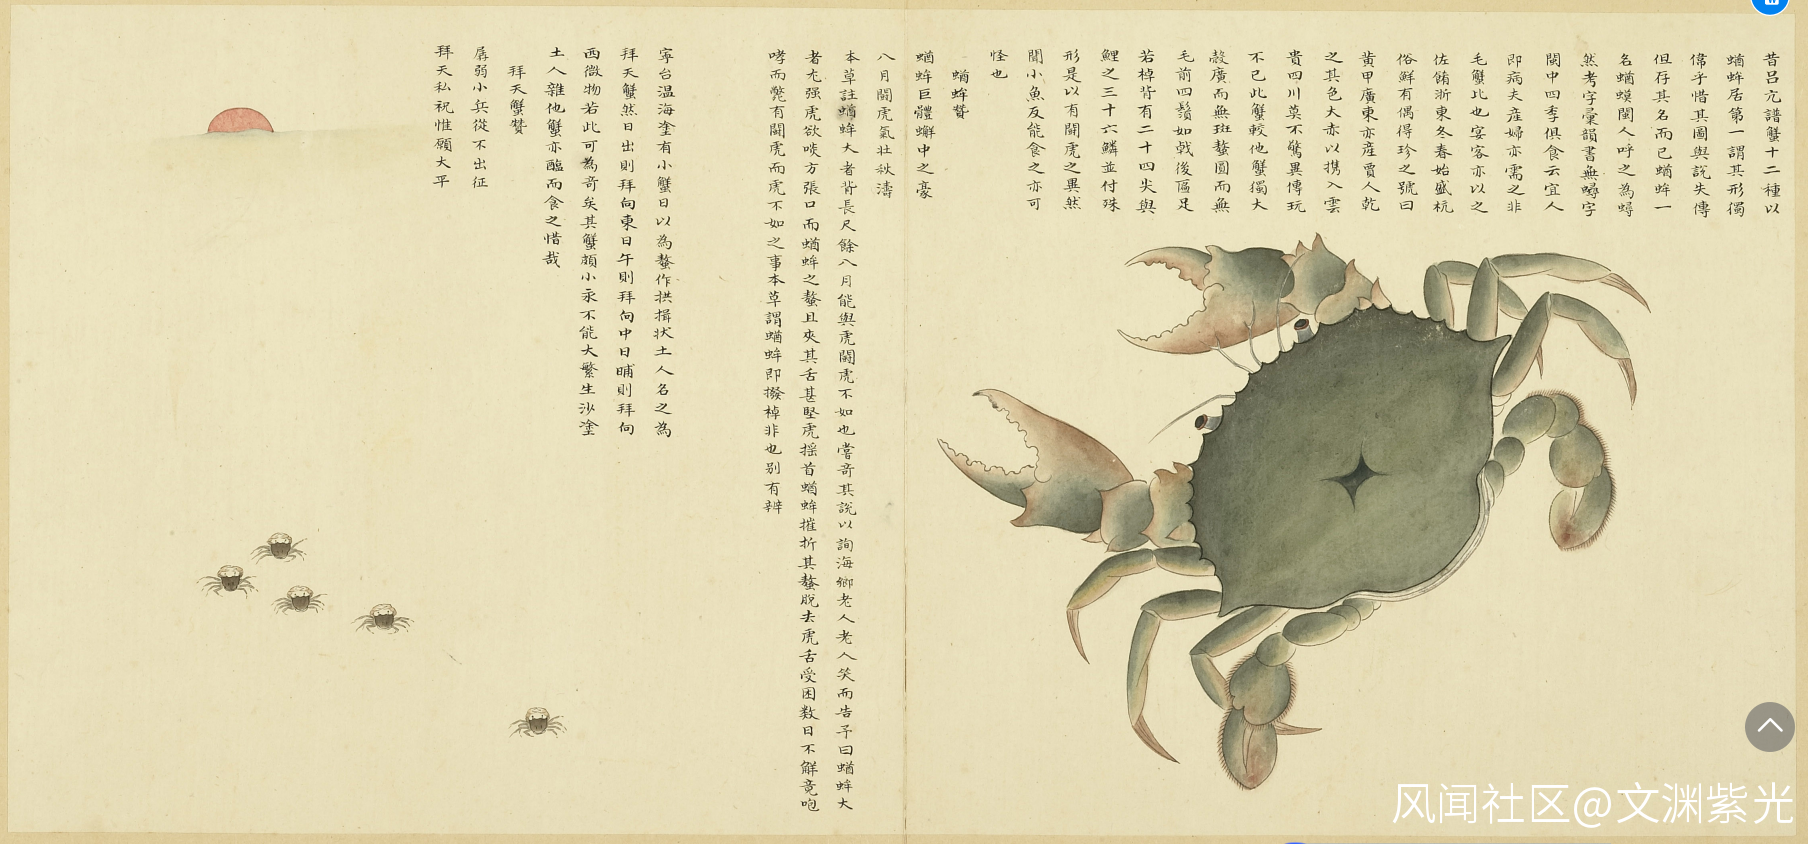 昔呂亢譜蟹十二種以
蝤蛑居第一謂其形獨
偉予惜其圖與說失傳
但存其名而已蝤蛑一
名蝤蠓閩人呼之為蟳
然考字彙韻書無蟳字
閩中四季俱食云宜人
即病夫產婦亦需之非
毛蟹比也宴客亦以之
佐餚浙東冬春始盛杭
俗鮮有偶得珍之號曰
黃甲廣東亦產賈人乾
之其色大赤以携入雲
貴四川莫不驚異傳玩
不已此蟹較他蟹獨大
殼廣而無斑螯圓而無
毛前四鬚如戟後匾足
若棹背有二十四尖與
鯉之三十六鱗並付殊
形是以有鬭虎之異然
聞小魚反能食之亦可
怪也
蝤蛑贊
蝤蛑巨體蠏中之豪
八月鬭虎氣壯秋濤
本草註蝤蛑大者背長尺餘八月能與虎鬭虎不如也嘗奇其說以詢海鄉老人老人笑而告予曰蝤蛑大
者尤强虎欲啖方張口而蝤蛑之螯且夾其舌甚堅虎搖首蝤蛑摧折其螯脫去虎舌受困数日不解竟咆
哮而斃有鬭虎而虎不如之事本草謂蝤蛑即撥棹非也别有辨
寧台温海塗有小蟹日以為螯作拱揖状土人名之為
拜天蟹然日出則拜向東日午則拜向中日晡則拜向
西微物若此可為奇矣其蟹頗小永不能大繁生沙塗
土人雜他蟹亦醢而食之惜哉
拜天蟹贊
孱弱小兵從不出征
拜天私祝惟願太平
风闻社区@文渊紫光